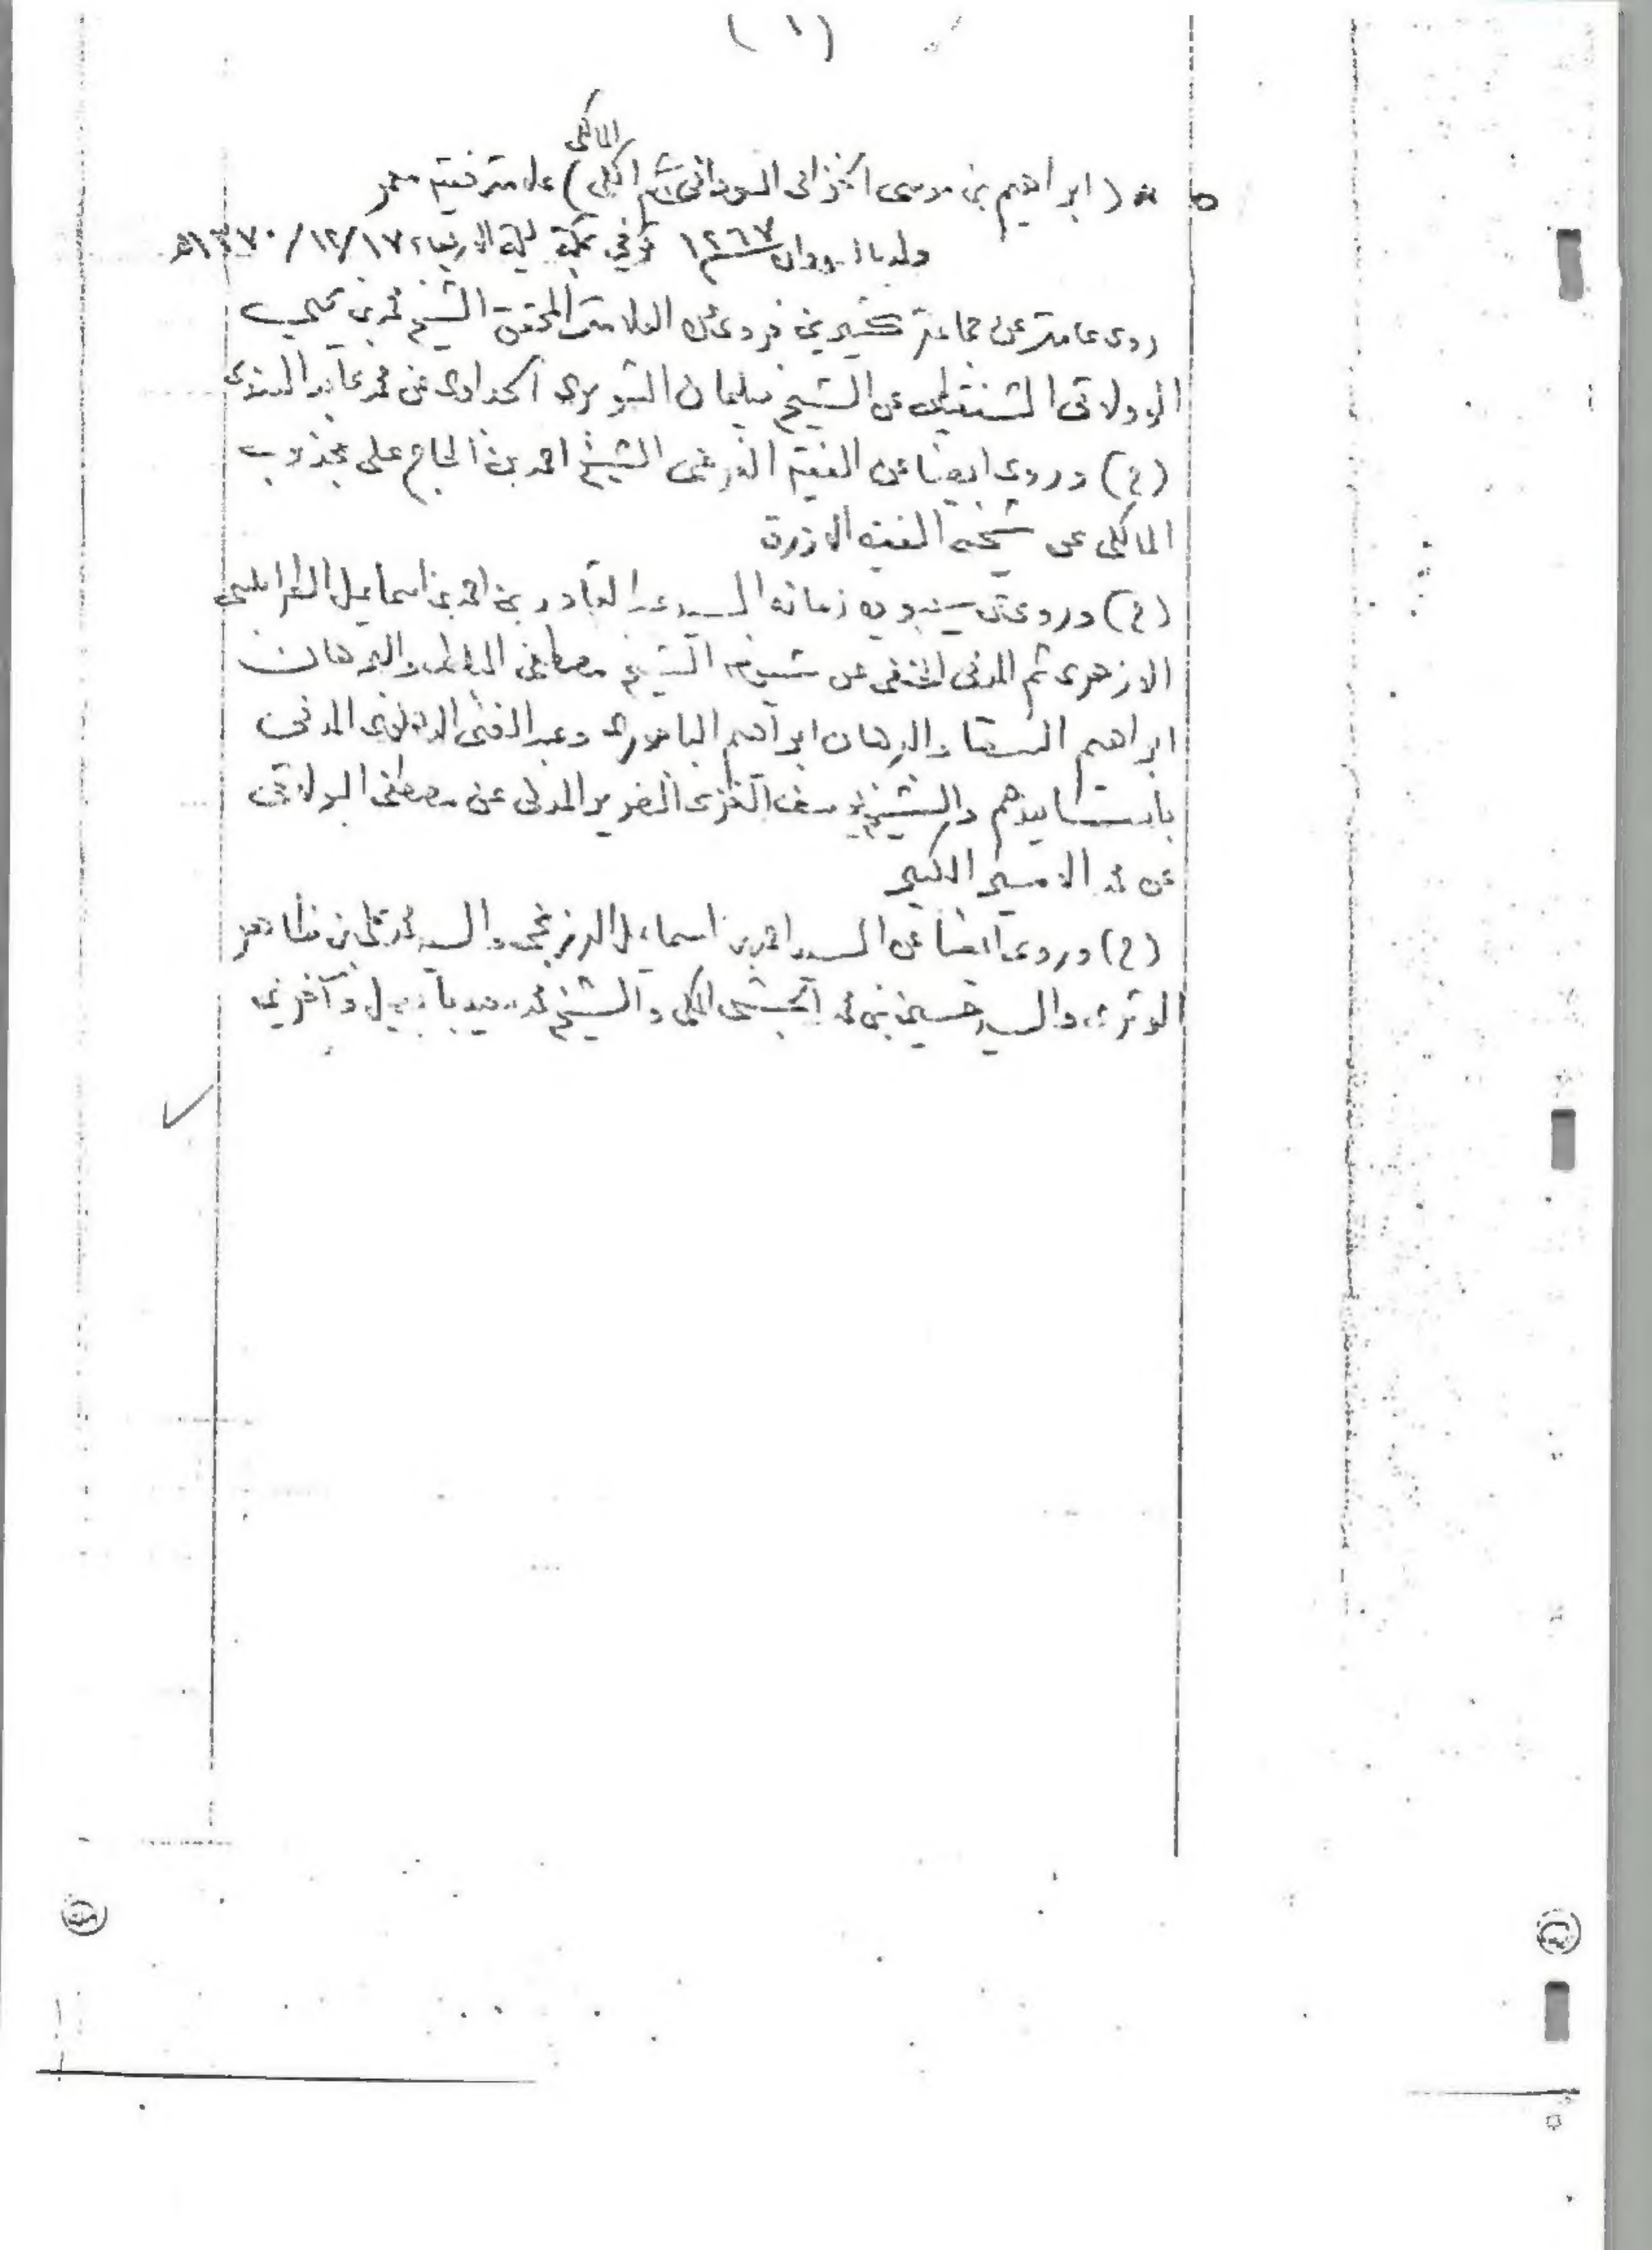 (١)
المالكي
* (ابراهيم بن موسى الخزامى السودانى ثم المكى) علامة فقيه معمر
ولد بالسودان ١٢٦٧ توفي بمكة ليلة الاربعاء ١٣٧٠/١٢/١٧هـ
روى عامة عن جماعة كثيرين فروى عن العلامة المحقق الشيخ محمد بن يحيى
الولاتى الشنقيطى عن الشيخ سليمان الشويرى الحدادى عن محمد عابد السندى
(ح) وروى ايضا عن الفقيه الفرضى الشيخ احمد بن الحاج على مجذوب
المالكى عن شيخه الفقيه الازرق
(ح) وروى عن سيبويه زمانه السيد عبد القادر بن احمد بن اسماعيل الطرابلسى
الازهرى ثم المدنى الحنفى عن شيوخه الشيخ مصطفى المبلط والبرهان
ابراهيم السقا والبرهان ابراهيم الباجورى وعبد الغنى الدهلوى المدنى
باسانيدهم والشيخ يوسف الغزى الضرير المدنى عن مصطفى البولاقى
عن محمد الامير الكبير
(ح) وروى ايضا عن السيد احمد بن اسماعيل البرزنجى والسيد محمد على بن ظاهر
الوترى والسيد حسين بن محمد الحبشى المكى والشيخ محمد سعيد بابصيل وآخرين